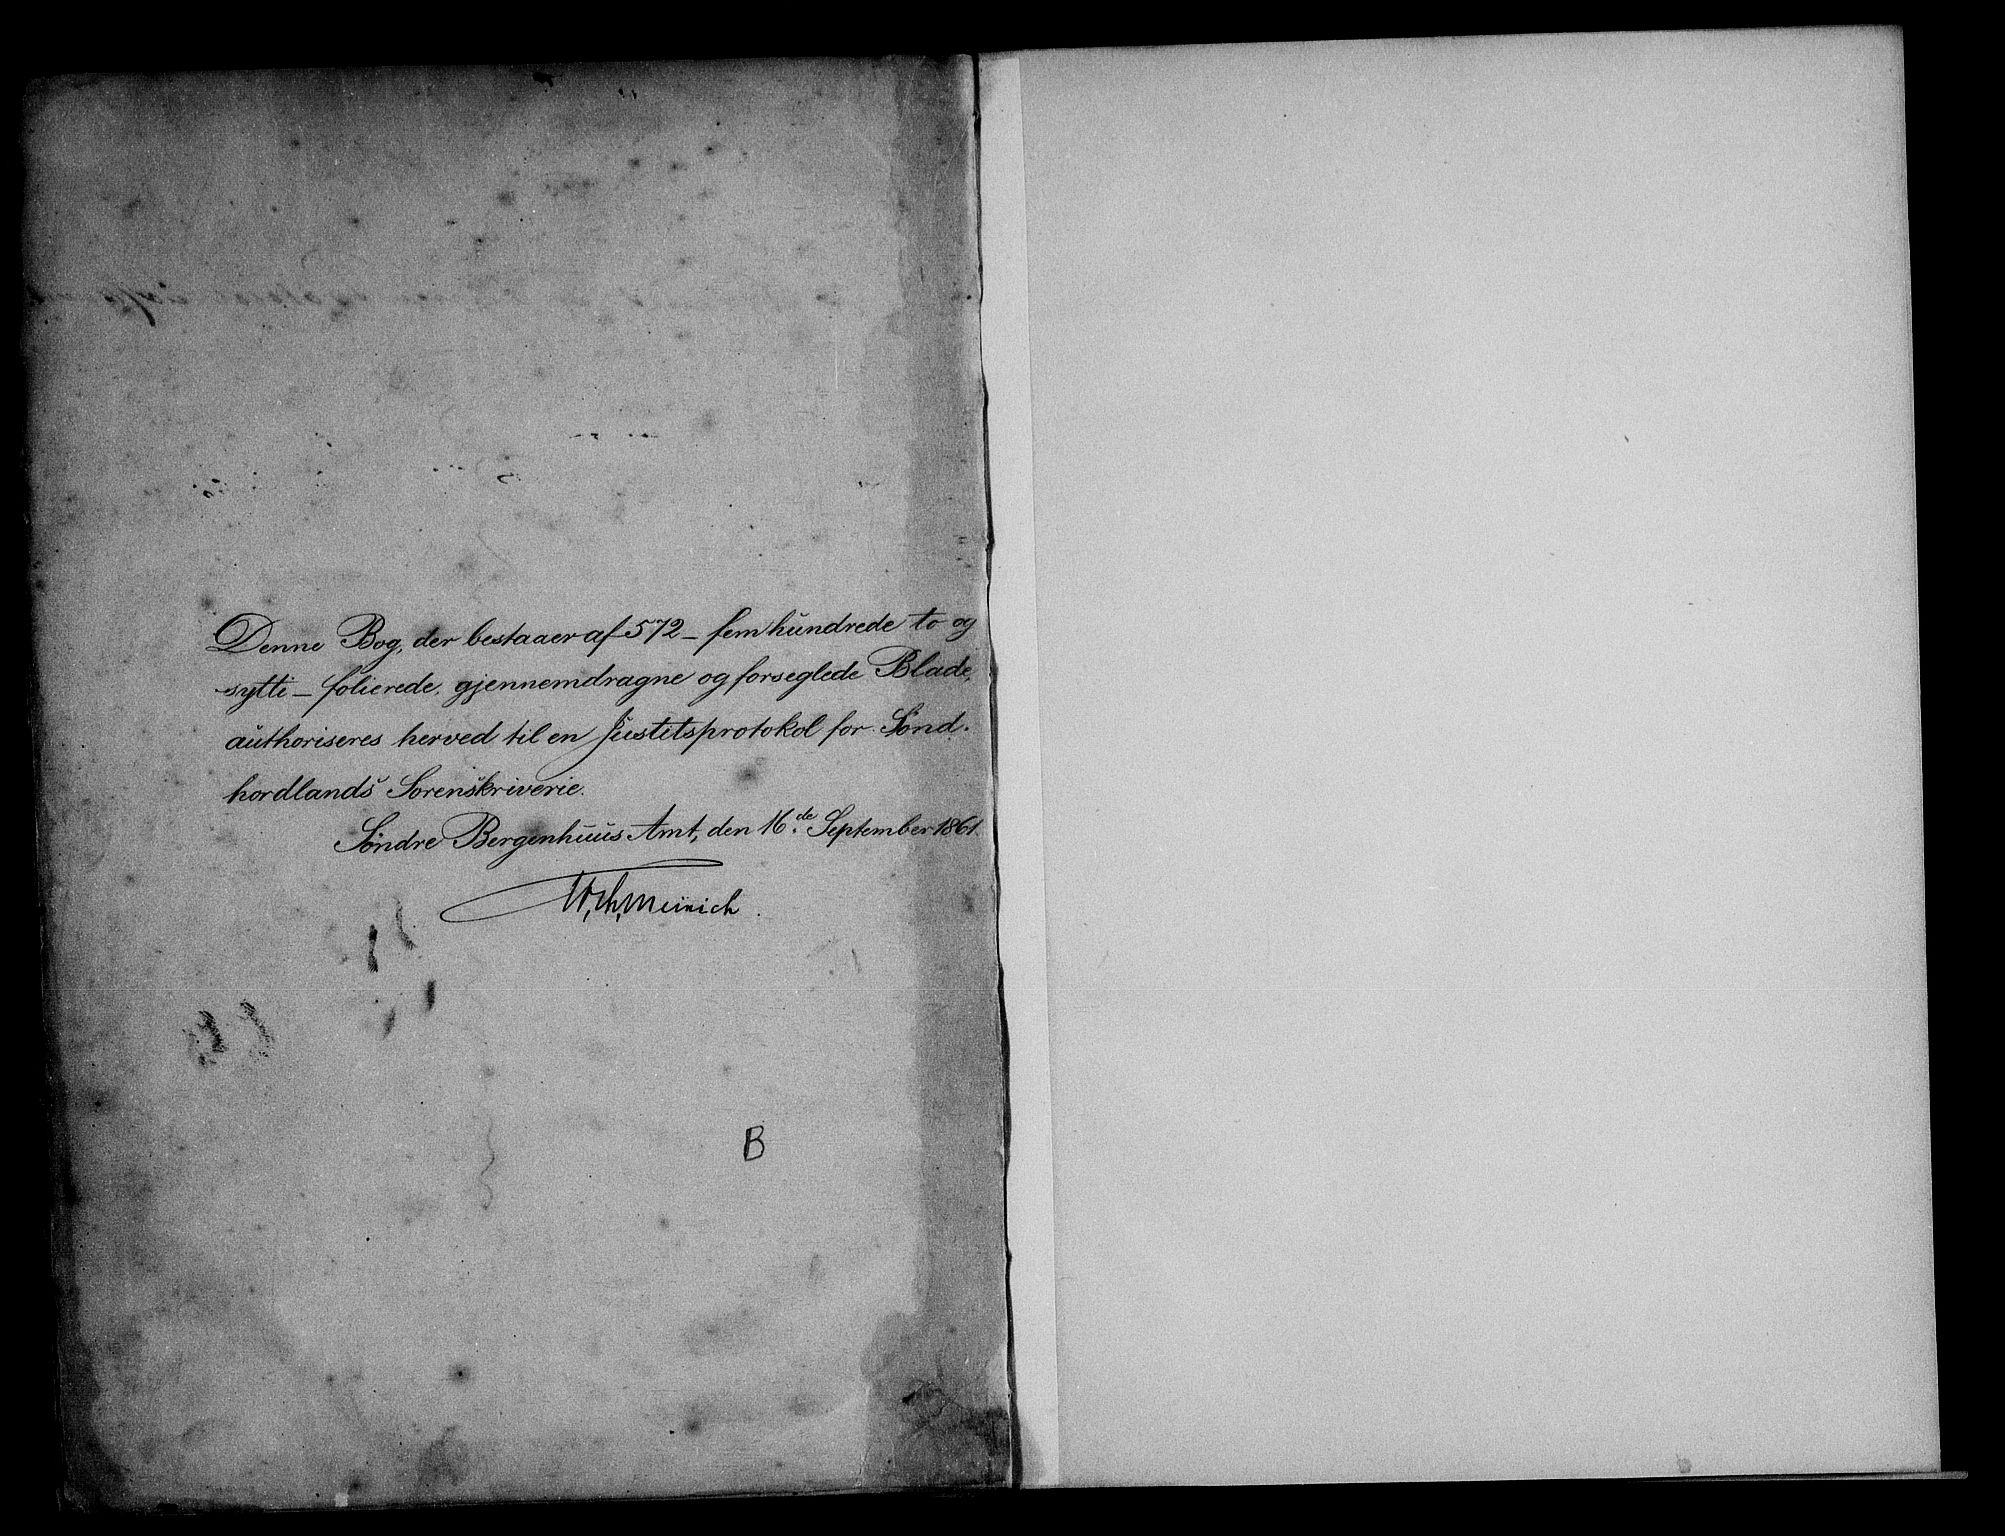 Denne Bog, der bestaaer af 572 – fem hundrede to og
sytti – folierede, gjennemdragne og forseglede Blade,
authoriseres herved til en Justitsprotokol for Sønd-
hordlands Sorenskriverie.
Søndre Bergenhuus Amt, den 16de September 1861.
Meinich.
B